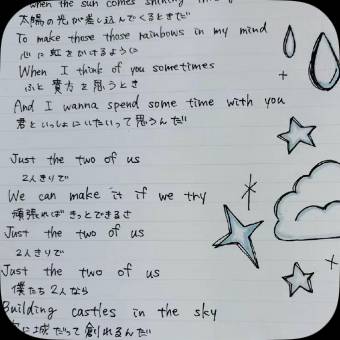 when the sun comes shining
太陽の光が差し込んでくるときだ
To make those those rainbows in my mind
心に虹をかけるように
When I think of you sometimes
ふと貴方を思うとき
And I wanna spend some time with you
君といっしょにいたいって思うんだ
Just the two of us
2人きりで
We can make it if we try
頑張れば きっとできるさ
Just the two of us
2人きりで
Just the two of us
僕たち2人なら
Building castles in the sky
に城だって創れるんだ